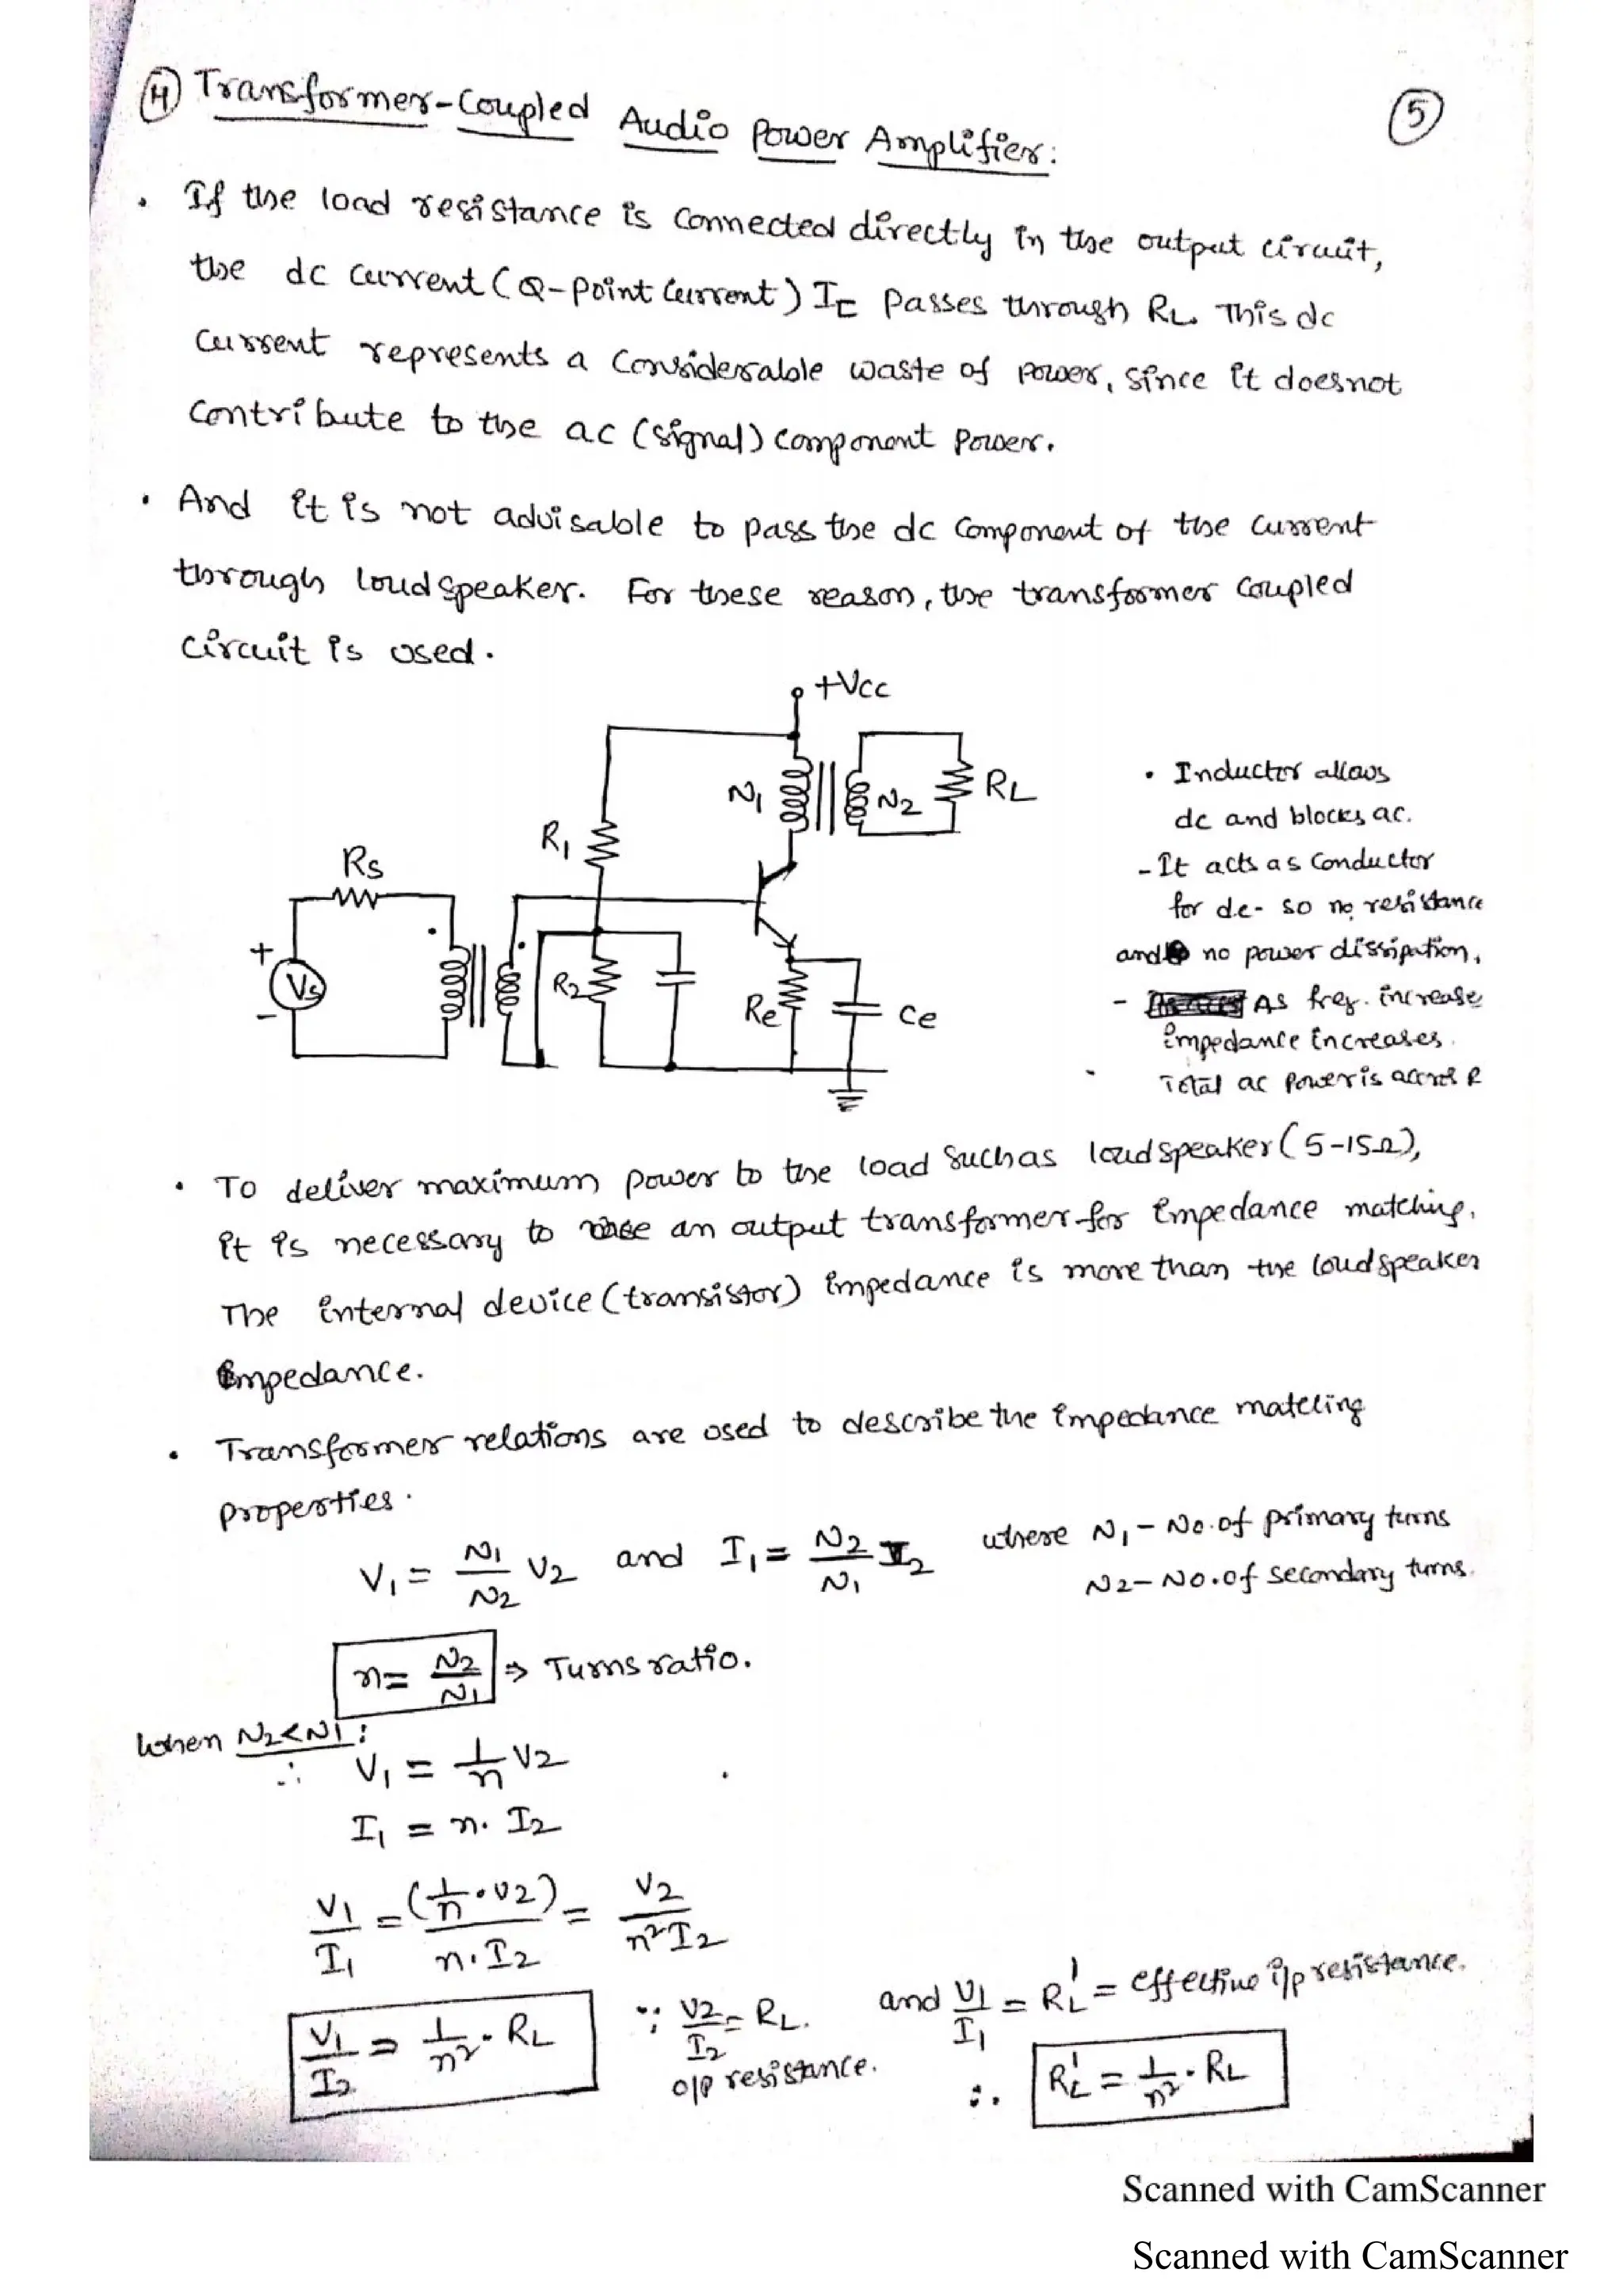 (4) Transformer-Coupled Audio Power Amplifier:
(5)
• If the load resistance is connected directly in the output circuit,
the dc current (Q-point current) IC passes through RL. This dc
current represents a considerable waste of power, since it doesnot
contribute to the ac (signal) component power.
• And it is not advisable to pass the dc component of the current
through loudspeaker. For these reason, the transformer coupled
circuit is used.
+VCC
N1
N2
RL
R1
RS
+
VS
-
R2
Re
Ce
• Inductor allows
dc and blocks ac.
- It acts as conductor
for d.c - so no resistance
and no power dissipation.
- As freq. increase
impedance increases.
Total ac power is across R
• To deliver maximum power to the load such as loudspeaker (5-15Ω),
it is necessary to use an output transformer for impedance matching.
The internal device (transistor) impedance is more than the loudspeaker
impedance.
• Transformer relations are used to describe the impedance matcling
properties.
V1 = N1/N2 V2 and I1 = N2/N1 I2 where N1 - No. of primary turns
N2 - No. of secondary turns.
n = N2/N1 ⇒ Turns ratio.
When N2<N1:
∴ V1 = 1/n V2
I1 = n. I2
V1/I1 = (1/n · V2)/n. I2 = V2/n² I2
V1/I2 = 1/n² · RL ∵ V2/I2 = RL. o/p resistance. and V1/I1 = RL' = effective i/p resistance.
∴ RL' = 1/n² · RL
Scanned with CamScanner
Scanned with CamScanner